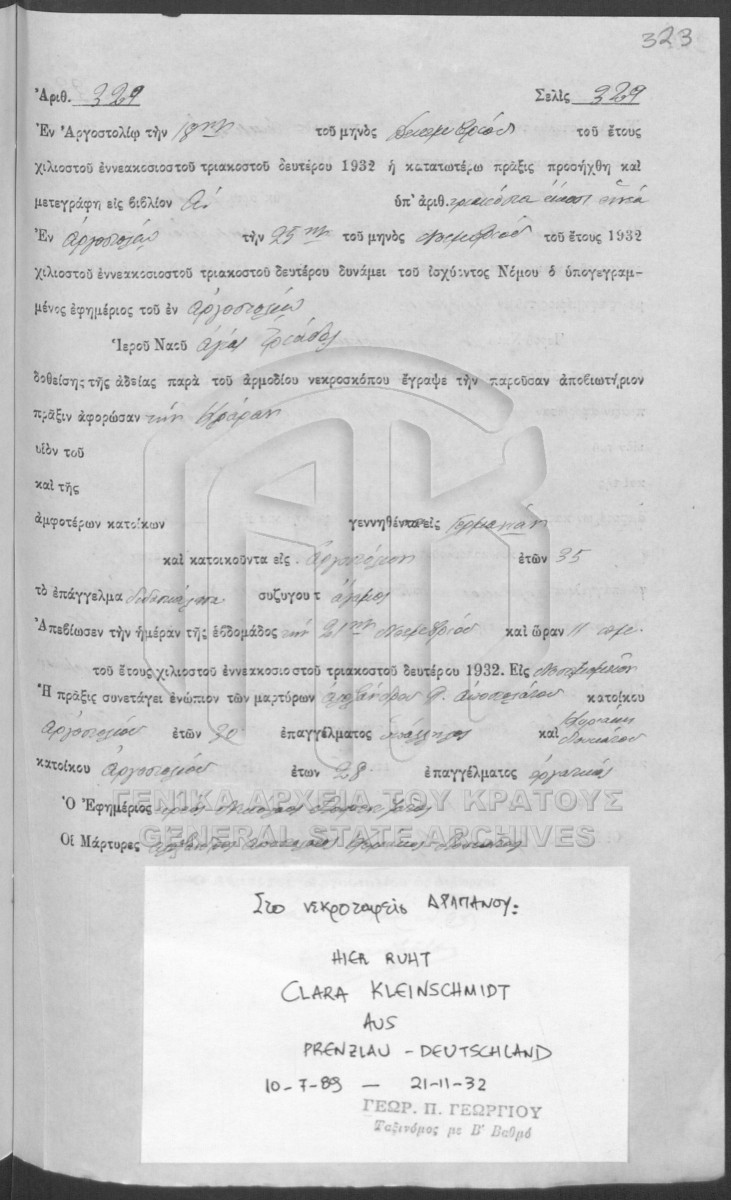 323
Ἀριθ. 329 Σελὶς 329
Ἐν Ἀργοστολίῳ τὴν 18ην τοῦ μηνὸς Δεκεμβρίου τοῦ ἔτους
χιλιοστοῦ ἐννεακοσιοστοῦ τριακοστοῦ δευτέρου 1932 ἡ κατατωτέρω πρᾶξις προσήχθη καὶ
μετεγράφη εἰς βιβλίον Α΄ ὑπ' ἀριθ. τριακόσια είκοσι εννέα
Ἐν Αργοστολίῳ τὴν 25ην τοῦ μηνὸς Νοεμβρίου τοῦ ἔτους 1932
χιλιοστοῦ ἐννεακοσιοστοῦ τριακοστοῦ δευτέρου δυνάμει τοῦ ἰσχύοντος Νόμου ὁ ὑπογεγραμ-
μένος ἐφημέριος τοῦ ἐν Αργοστολίῳ
Ἱεροῦ Ναοῦ Αγίας Τριάδος
δοθείσης τῆς ἀδείας παρὰ τοῦ ἁρμοδίου νεκροσκόπου ἔγραψε τὴν παροῦσαν ἀποβιωτήριον
πρᾶξιν ἀφορῶσαν την Κλάραν
υἱὸν τοῦ
καὶ τῆς
ἀμφοτέρων κατοίκων γεννηθέντα εἰς Γερμανίαν
καὶ κατοικοῦντα εἰς Αργοστόλιον ἐτῶν 35
τὸ ἐπάγγελμα διδασκάλισσα συζύγου τ άγαμος
Ἀπεβίωσεν τὴν ἡμέραν τῆς ἑβδομάδος την 21ην Νοεμβρίου καὶ ὥραν 11 π.μ.
τοῦ ἔτους χιλιοστοῦ ἐννεακοσιοστοῦ τριακοστοῦ δευτέρου 1932. Εἰς Νοσοκομεῖον
Ἡ πρᾶξις συνετάγει ἐνώπιον τῶν μαρτύρων Αλεξάνδρου κατοίκου
Αργοστολίου ἐτῶν ἐπαγγέλματος καὶ
κατοίκου Αργοστολίου ἐτων 28 ἐπαγγέλματος εργατικός
Ὁ Ἐφημέριος
Οἱ Μάρτυρες
ΓΕΝΙΚΑ ΑΡΧΕΙΑ ΤΟΥ ΚΡΑΤΟΥΣ
GENERAL STATE ARCHIVES
Στο νεκροταφείο ΔΡΑΠΑΝΟΥ:
HIER RUHT
CLARA KLEINSCHMIDT
AUS
PRENZLAU - DEUTSCHLAND
10-7-89 — 21-11-32
ΓΕΩΡ. Π. ΓΕΩΡΓΙΟΥ
Ταξινόμος με Β' Βαθμό